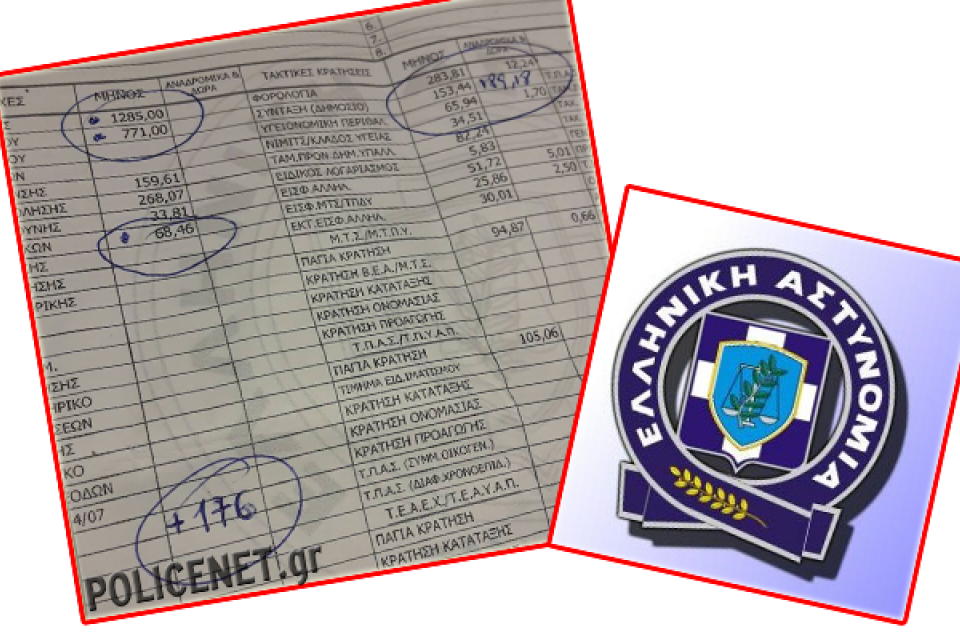 6.
7.
8.
ΚΕΣ ΜΗΝΟΣ ΑΝΑΔΡΟΜΙΚΑ & ΔΩΡΑ ΤΑΚΤΙΚΕΣ ΚΡΑΤΗΣΕΙΣ ΜΗΝΟΣ ΑΝΑΔΡΟΜΙΚΑ & ΔΩΡΑ
Σ 1285,00 ΦΟΡΟΛΟΓΙΑ 283,81 12,24
ΟΥ 771,00 ΣΥΝΤΑΞΗ (ΔΗΜΟΣΙΟ) 153,44 189,18 Τ.Π.Α.Σ
ΟΥ ΥΓΕΙΟΝΟΜΙΚΗ ΠΕΡΙΘΑΛ. 65,94 1,70
Ν ΝΙΜΙΤΣ/ΚΛΑΔΟΣ ΥΓΕΙΑΣ 34,51 ΤΑΚ.
ΝΣΗΣ 159,61 ΤΑΜ.ΠΡΟΝ.ΔΗΜ.ΥΠΑΛΛ. 82,24 ΤΑΚ.
ΛΗΣΗΣ 268,07 ΕΙΔΙΚΟΣ ΛΟΓΑΡΙΑΣΜΟΣ 5,83
ΥΝΗΣ 33,81 ΕΙΣΦ.ΑΛΛΗΛ. 51,72 5,01 ΠΡ
ΚΩΝ 68,46 ΕΙΣΦ.ΜΤΣ/ΤΠΔΥ 25,86 2,50 Τ.
ΗΣ ΕΚΤ.ΕΙΣΦ.ΑΛΛΗΛ. 30,01
ΗΣΗΣ Μ.Τ.Σ./Μ.Τ.Π.Υ.
ΡΙΚΗΣ ΠΑΓΙΑ ΚΡΑΤΗΣΗ 94,87 0,66
ΚΡΑΤΗΣΗ Β.Ε.Α./Μ.Τ.Σ.
ΚΡΑΤΗΣΗ ΚΑΤΑΤΑΞΗΣ
ΚΡΑΤΗΣΗ ΟΝΟΜΑΣΙΑΣ
Μ. ΚΡΑΤΗΣΗ ΠΡΟΑΓΩΓΗΣ
ΣΗΣ Τ.Π.Α.Σ./Τ.Π.Υ.Α.Π.
ΗΡΙΚΟ ΠΑΓΙΑ ΚΡΑΤΗΣΗ 105,06
ΣΕΩΝ ΤΙΜΗΜΑ ΕΙΔ.ΙΜΑΤΙΣΜΟΥ
ΗΣ ΚΡΑΤΗΣΗ ΚΑΤΑΤΑΞΗΣ
ΚΟ ΚΡΑΤΗΣΗ ΟΝΟΜΑΣΙΑΣ
ΟΔΩΝ ΚΡΑΤΗΣΗ ΠΡΟΑΓΩΓΗΣ
4/07 Τ.Π.Α.Σ. (ΣΥΜΜ.ΟΙΚΟΓΕΝ.)
+176 Τ.Π.Α.Σ. (ΔΙΑΦ.ΧΡΟΝΟΕΠΙΔ.)
Τ.Ε.Α.Ε.Χ./Τ.Ε.Α.Υ.Α.Π.
ΠΑΓΙΑ ΚΡΑΤΗΣΗ
ΚΡΑΤΗΣΗ ΚΑΤΑΤΑΞΗΣ
POLICENET.gr
ΕΛΛΗΝΙΚΗ ΑΣΤΥΝΟΜΙΑ